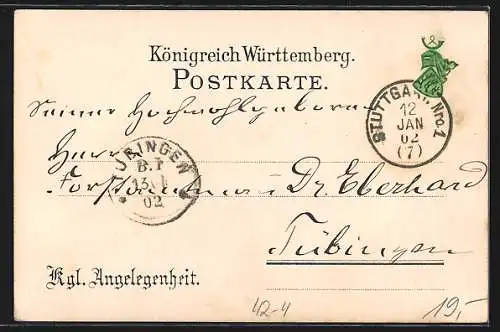 Königreich Württemberg.
POSTKARTE.
STUTTGART Nro.1
12
JAN
02
(7)
Seiner Hochwohlgeboren
Herrn
TÜBINGEN
B.P
13 1
02
Dr. Eberhard
Tübingen
Kgl. Angelegenheit.
42-4
19,-